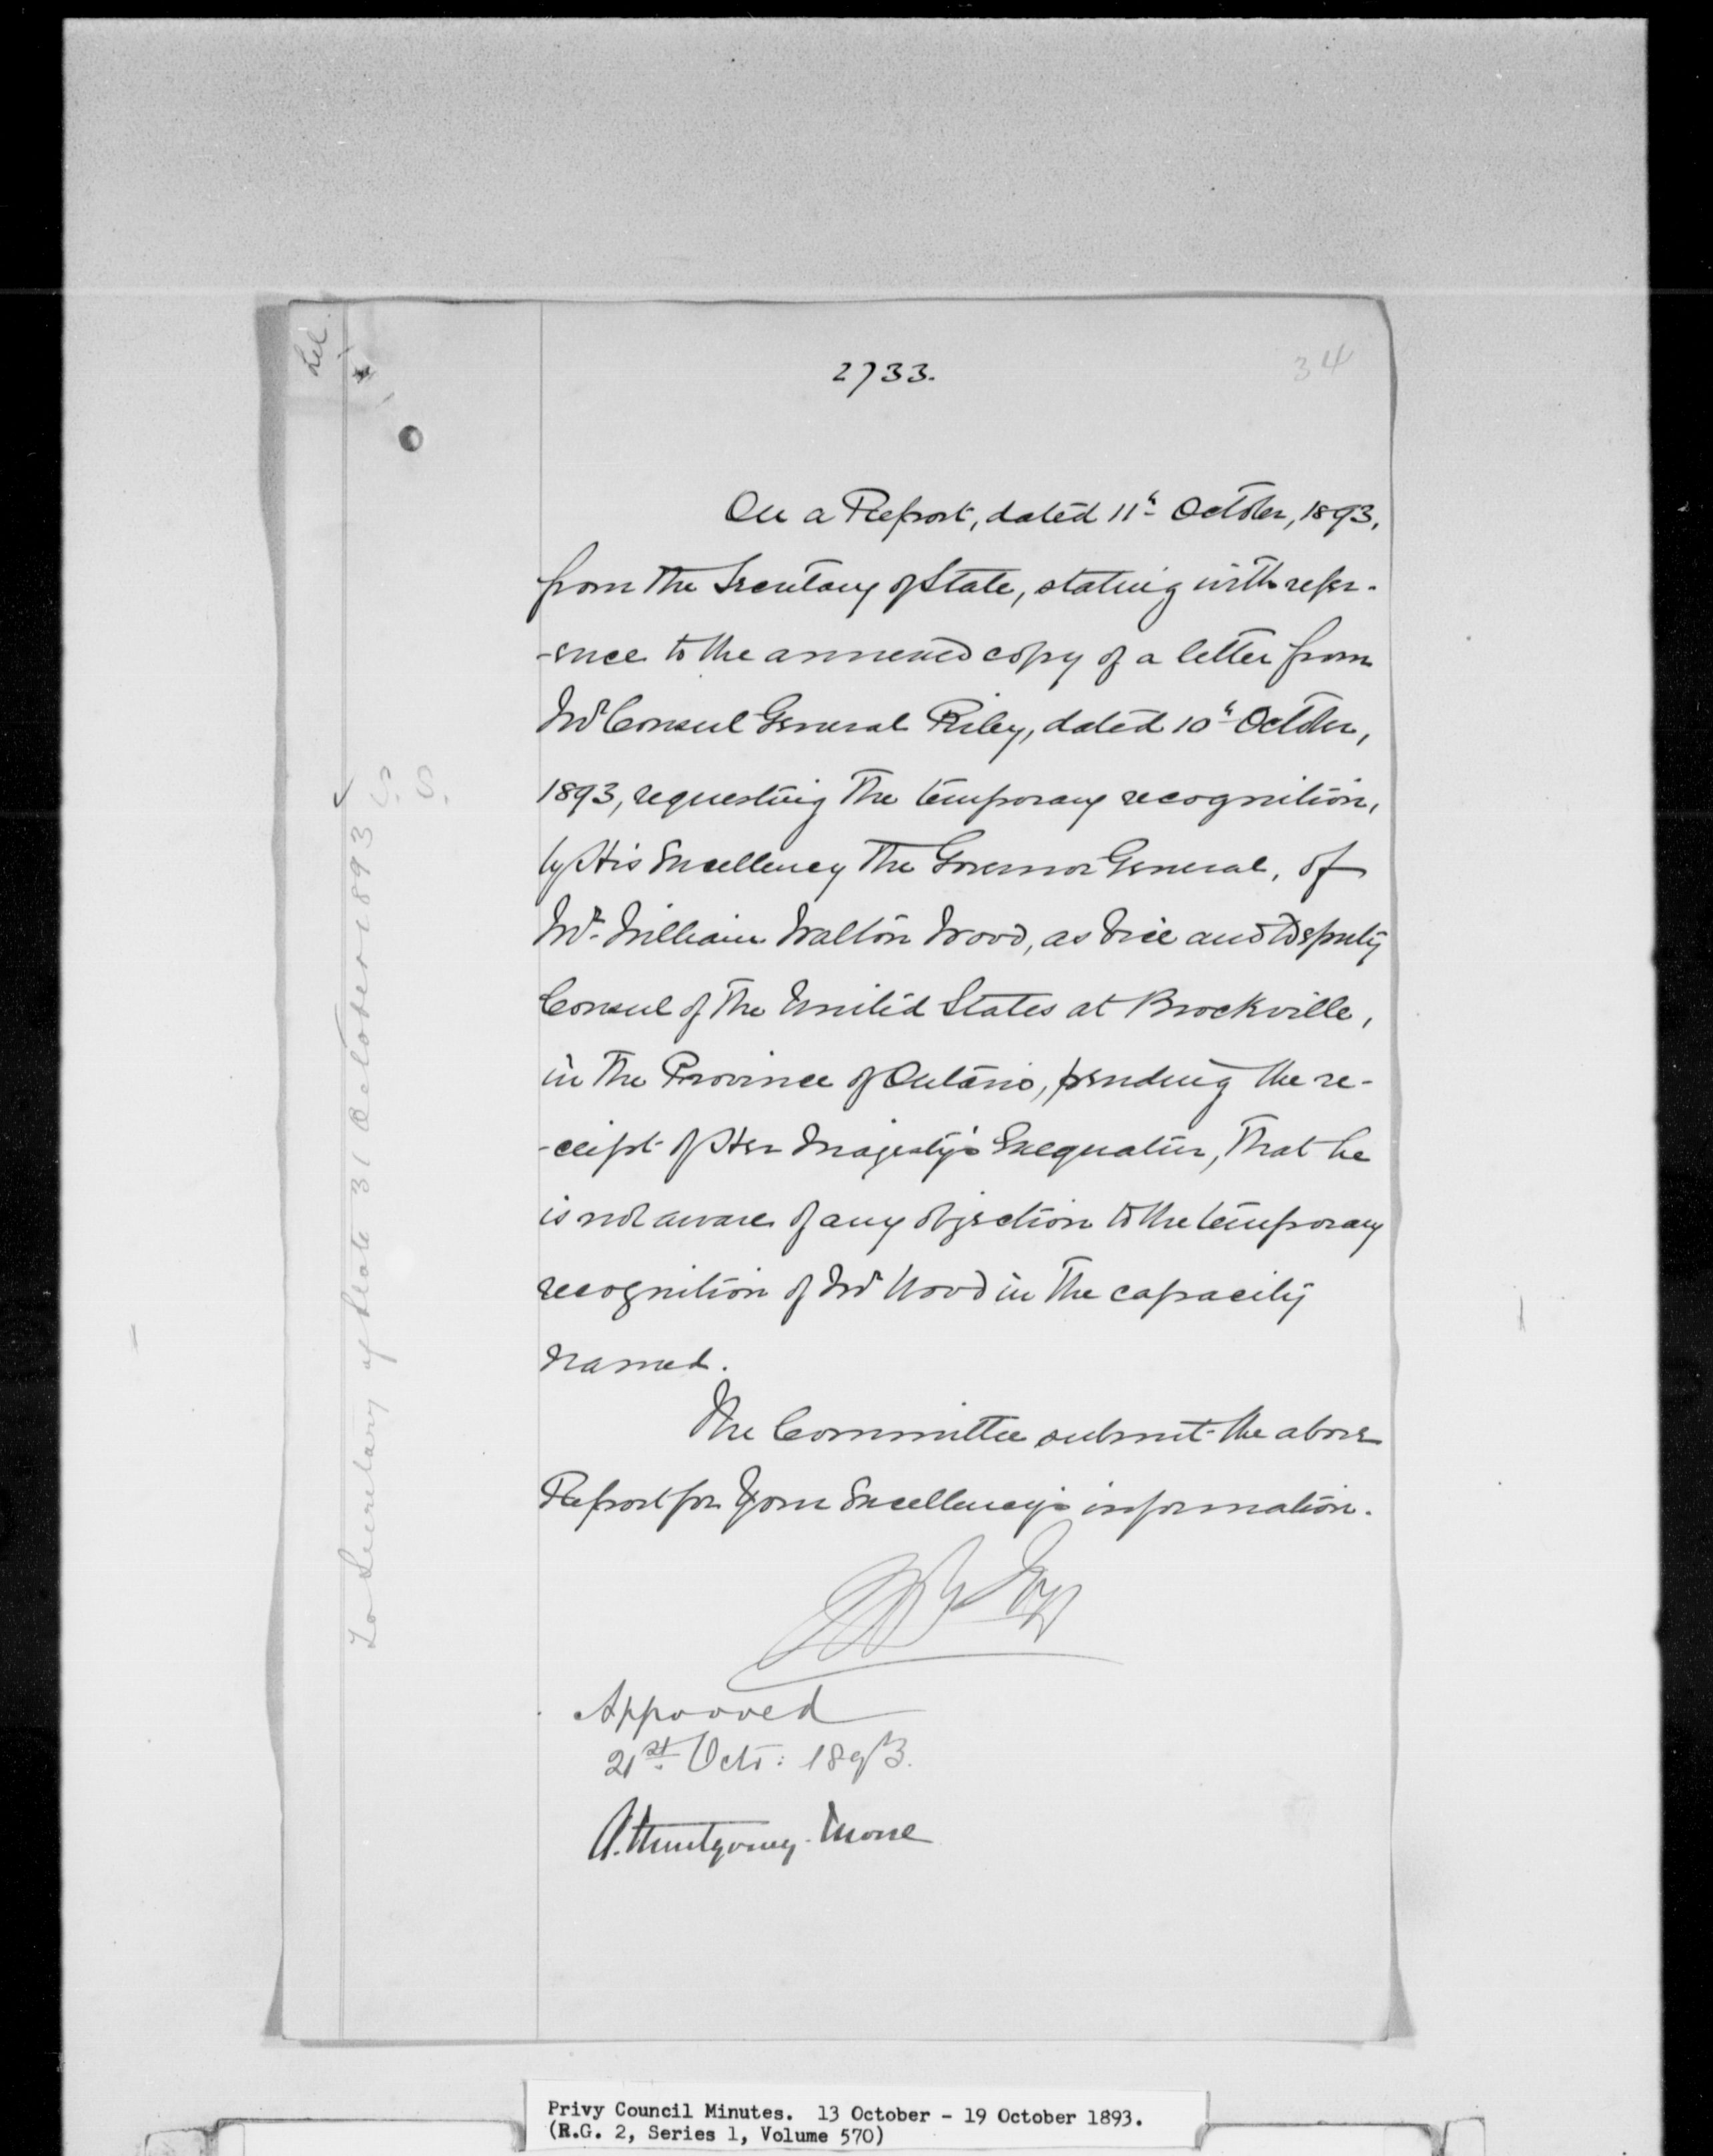 2733.
34
On a Report, dated 11th October, 1893,
from the Secretary of State, stating with refer-
-ence to the annexed copy of a letter from
Mr Consul General Riley, dated 10th October,
1893, requesting the temporary recognition,
by His Excellency the Governor General, of
Mr. William Walton Wood, as Vice and Deputy
Consul of the United States at Brockville,
in the Province of Ontario, pending the re-
-ceipt of Her Majesty's Exequatur, that he
is not aware of any objection to the temporary
recognition of Mr Wood in the capacity
named.
The Committee submit the above
Report for Your Excellency's information.
Approved
21st Oct: 1893.
A. Montgomery Moore
To Secretary of State 31 October 1893
S. S.
Privy Council Minutes. 13 October - 19 October 1893.
(R.G. 2, Series 1, Volume 570)